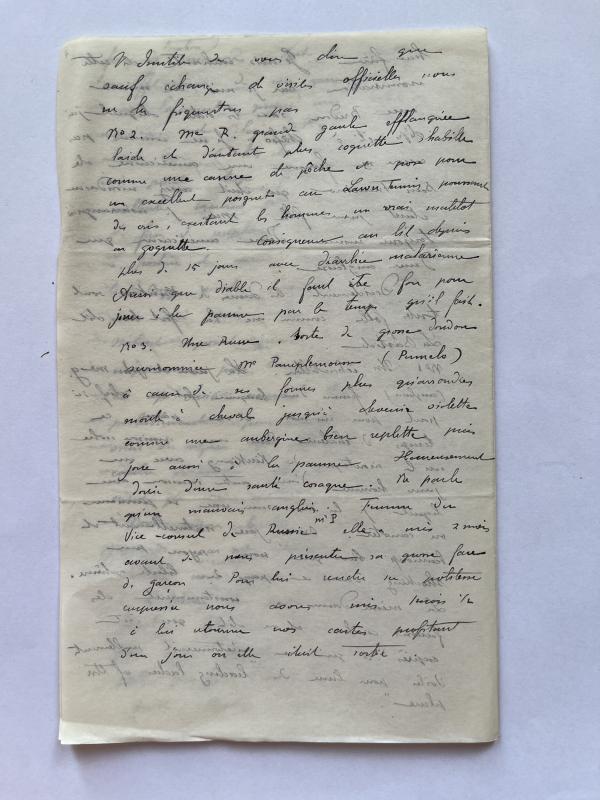 Inutile de vous dire que
sauf échange de visites officielles nous
ne la fréquentons pas
No 2. Mme R. grande gaule efflanquée
laide et d'autant plus coquette s'habille
comme une canne de pêche et pose pour
un excellent poignet au Lawn Tennis poussant
des cris, excitant les hommes, un vrai matelot
en goguette consignée au lit depuis
plus de 15 jours avec diarrhée malarienne
Aussi que diable il faut être fou pour
jouer à la paume par le temps qu'il fait.
No 3. Une Russe. Sorte de grosse dondon
surnommée Me Pamplemousse (Pumelo)
à cause de ses formes plus qu'arrondies
monte à cheval jusqu'à devenir violette
comme une aubergine bien replette puis
joue aussi à la paume Heureusement
douée d'une santé cosaque. Ne parle
qu'un mauvais anglais. Femme du
Vice-consul de Russie Mr P elle a mis 2 mois
avant de nous présenter sa grosse face
de garçon Pour lui rendre sa politesse
nous avons mis 1/2
à lui retourner nos cartes profitant
d'un jour où elle était sortie